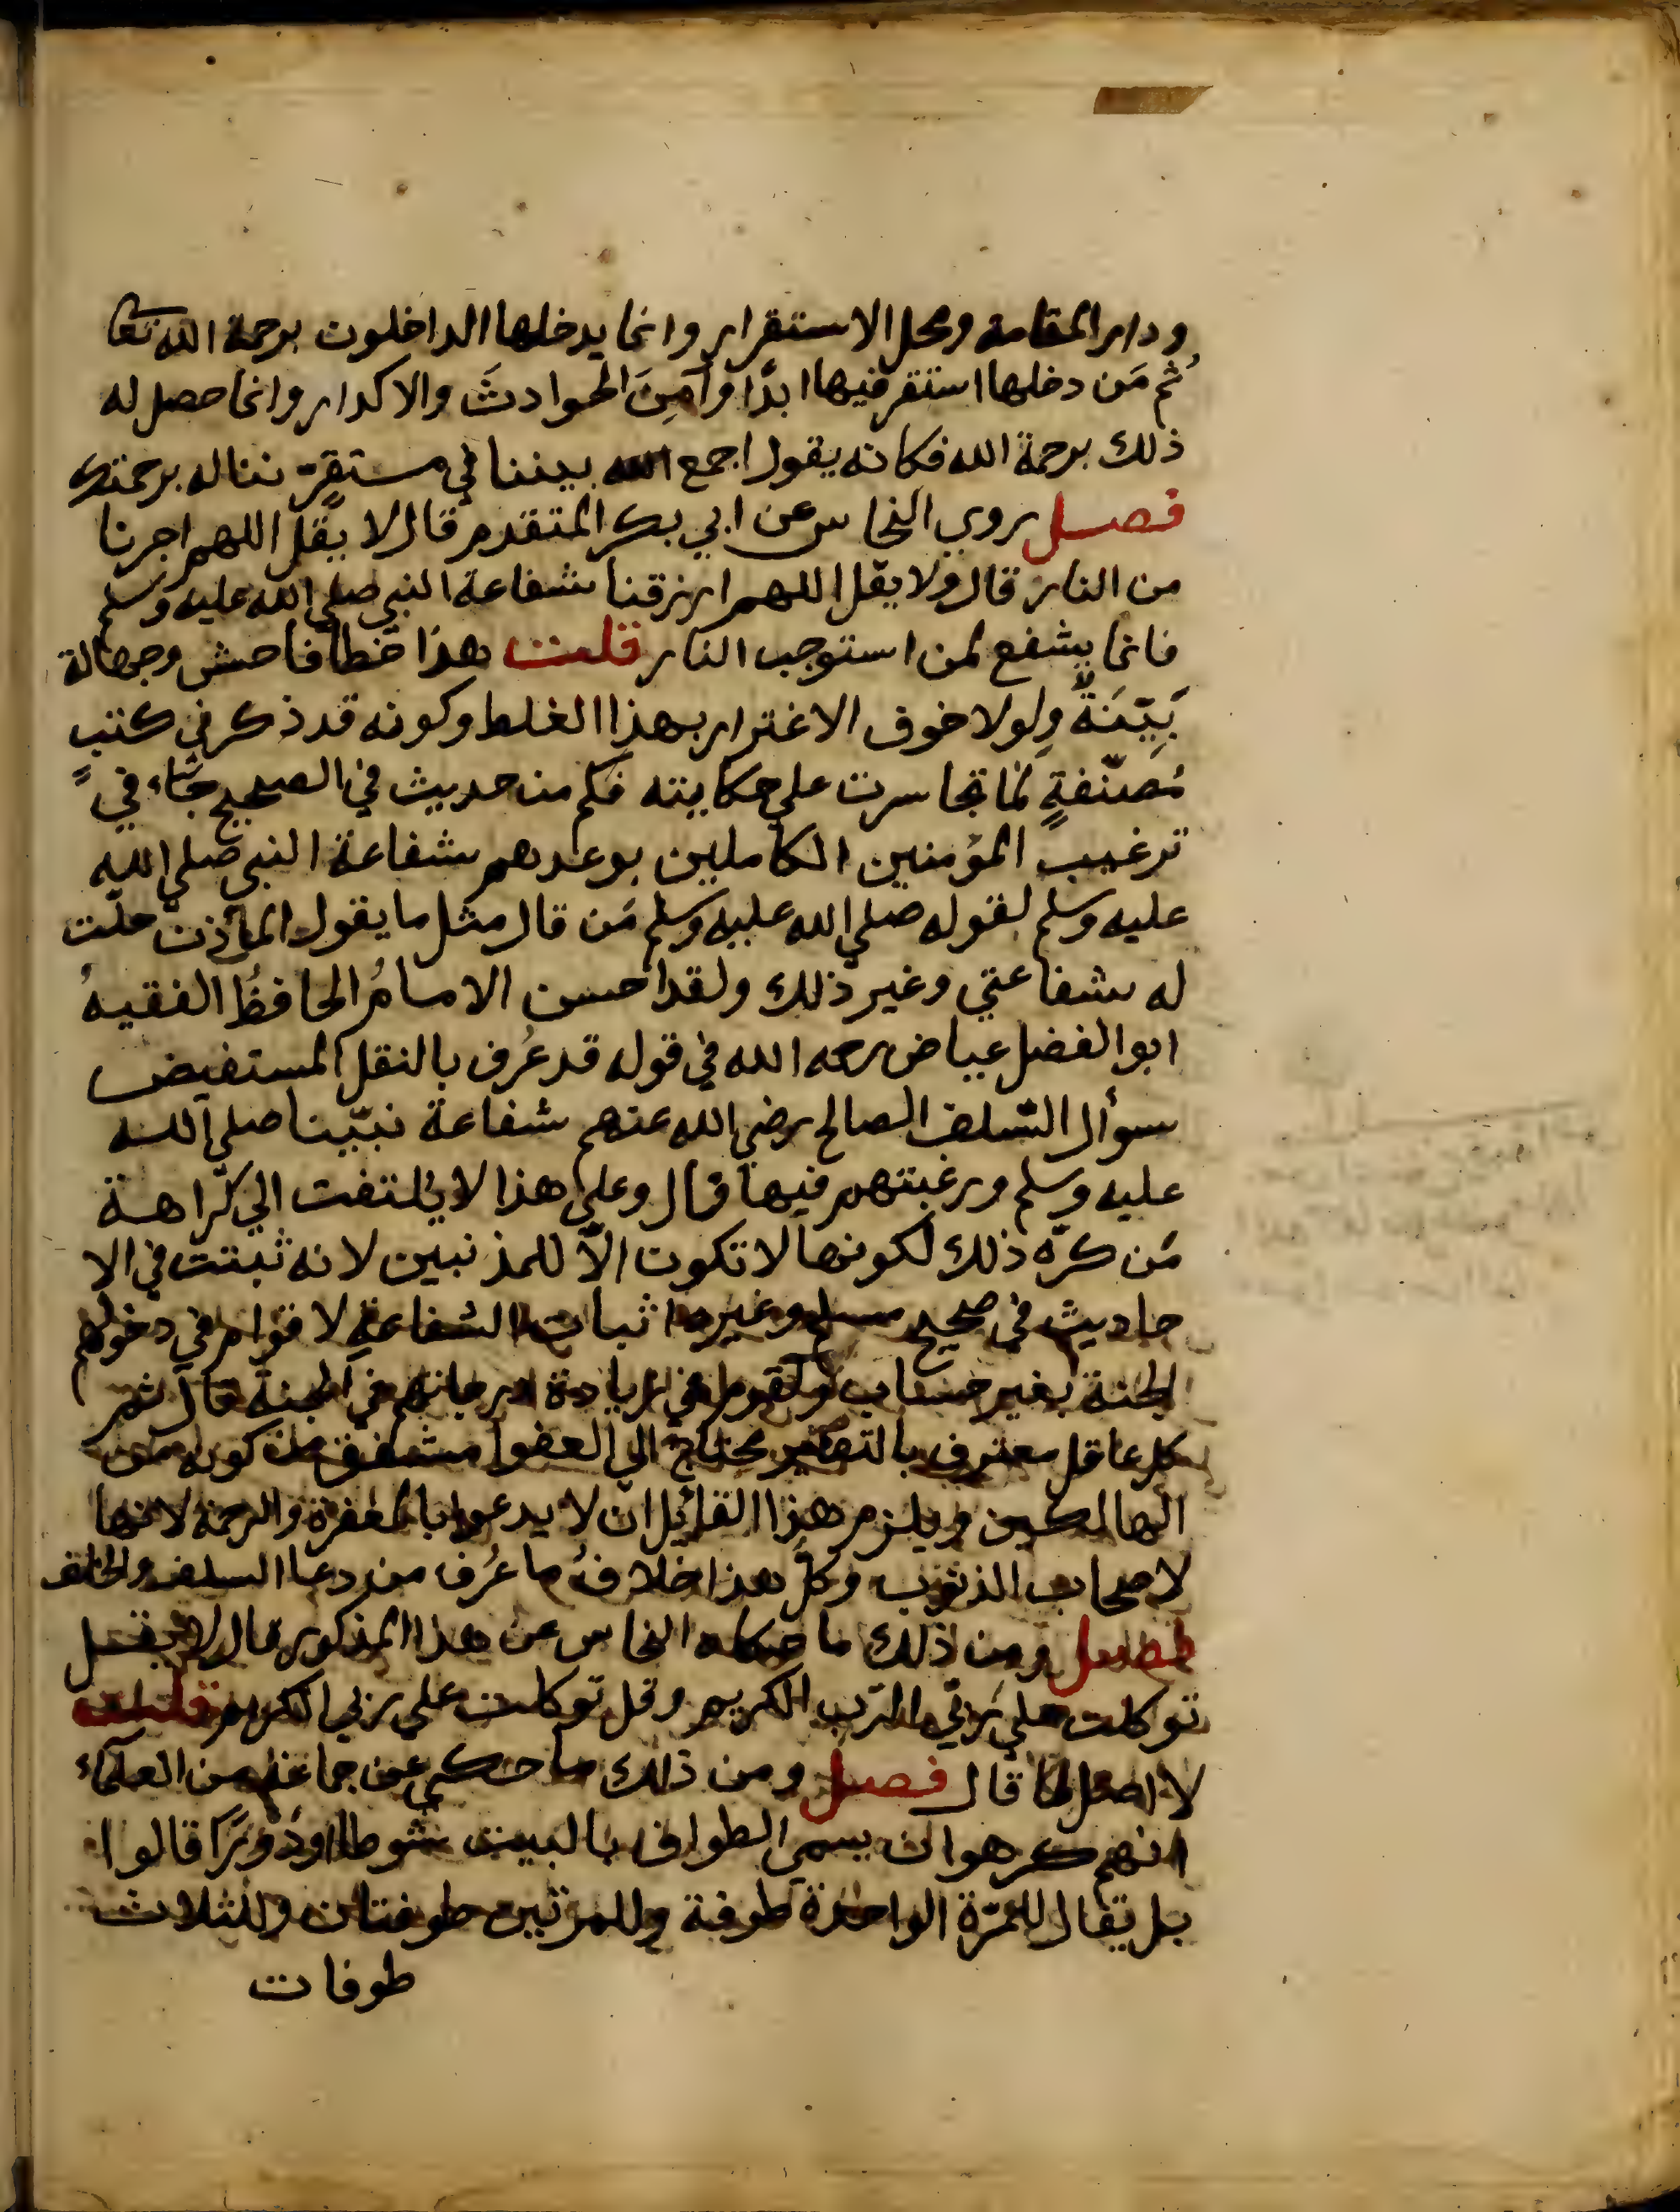 ودار المقامة ومحل الاستقرار وانما يدخلها الداخلون برحمة الله تعا
ثم مَن دخلها استقر فيها ابدًا وأمِنَ الحوادثَ والاكدار وانما حصل له
ذلك برحمة الله فكانه يقول اجمع الله بيننا في مستقرّ نناله برحمتك
فصل روي النحاس عن ابي بكر المتقدم قال لا يقل اللهم اجرنا
من النار قال ولا يقل اللهم ارزقنا شفاعة النبي صلي الله عليه وسلم
فانما يشفع لمن استوجب النار قلت هذا خطأ فاحش وجهالة
بَيِّنَةٌ ولولا خوف الاغترار بهذا الغلط وكونه قد ذكر في كتبٍ
مُصنّفةٍ لما تجاسرت علي حكايته فكم من حديث في الصحيح جَاء في
ترغيب المؤمنين الكاملين بوعدهم شفاعة النبي صلي الله
عليه وسلم لقوله صلي الله عليه وسلم مَن قال مثل ما يقول المأذن حلّت
له شفاعتي وغير ذلك ولقد احسن الامامُ الحافظُ الفقيهُ
ابوا الفضل عياض رحمه الله في قوله قد عُرف بالنقل المستفيض
سوأل السّلف الصالح رضي الله عنهم شفاعة نبيّنا صلي الله
عليه وسلم ورغبتهم فيها قال وعلي هذا لا يلتفت الي كراهة
مَن كره ذلك لكونها لا تكون الاّ للمذنبين لانه ثبتت في الا
حاديث في صحيح مسلم وغيره اثبات الشفاعةِ لاقوام في دخولهم
الجنة بغير حساب ولقوم في زيادة درجاتهم في الجنة قال ثم
كل عاقل معترف بالتقصير محتاج الي العفوا مشفق من كونه من
الهالكين ويلزم هذا القايل ان لا يدعوا بالمغفرة والرحمة لانها
لاصحاب الذنوب وكلّ هذا خلافُ ما عُرف من دعا السلف والخلف
فصل ومن ذلك ما حكاه النحاس عن هذا المذكور قال لا يقل
توكلت علي ربّي الرّب الكريم وقل توكلت علي ربي الكريم قلت
لا اصل لما قال فصل ومن ذلك ما حكي عن جماعة من العلماء
انهم كرهوا ان يسمي الطواف بالبيت شوطا اودَوْرًا قالوا
بل يقال للمرّة الواحدة طوفة وللمرتين طوفتان وللثلاث
طوفات